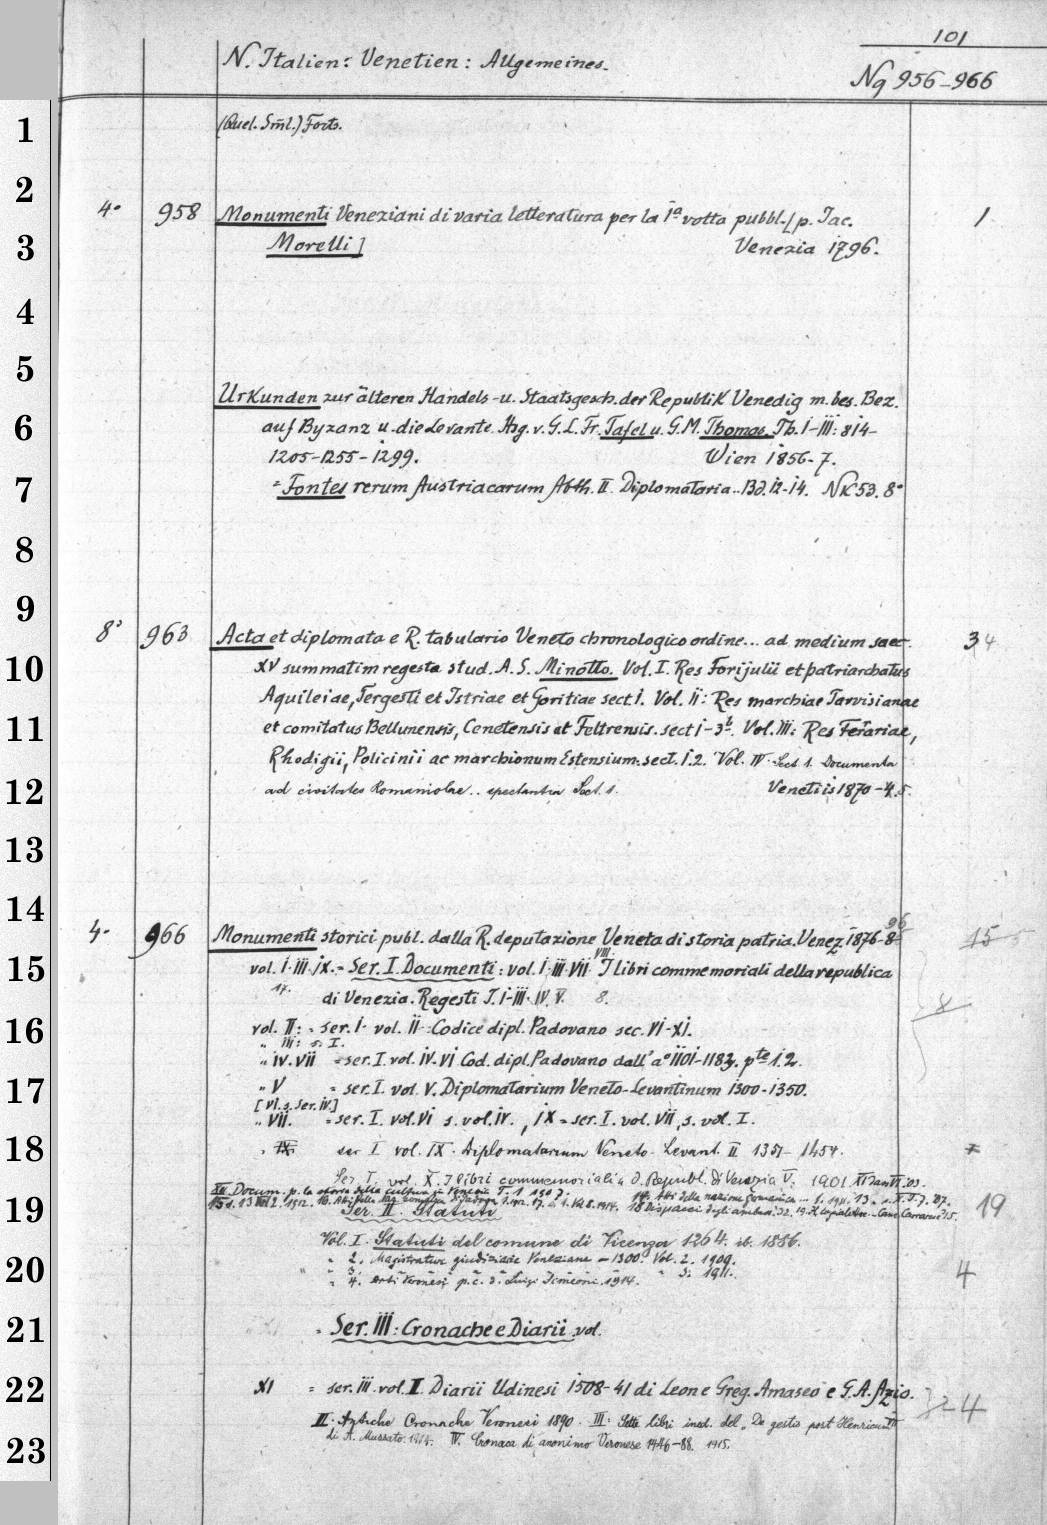 101
N. Italien: Venetien: Allgemeines.
Nq 956-966
1
(Quel. Sml.) Forts.
2
4° 958 Monumenti Veneziani di varia letteratura per la 1ª volta pubbl. [p. Jac. 1
3
Morelli] Venezia 1796.
4
5
Urkunden zur älteren Handels- u. Staatsgesch. der Republik Venedig m. bes. Bez.
6
auf Byzanz u. die Levante. Hsg. v. G. L. Fr. Tafel u. G. M. Thomas. Th. I-III: 814-
1205-1255-1299. Wien 1856-7.
7
= Fontes rerum Austriacarum Abth. II. Diplomataria.. Bd. 12-14. NK 53. 8°
8
9
8° 963 Acta et diplomata e R. tabulario Veneto chronologico ordine... ad medium saec. 3 4
10
XV summatim regesta stud. A. S. Minotto. Vol. I. Res Forijulii et patriarchatus
Aquileiae, Tergesti et Istriae et Goritiae sect. I. Vol. II: Res marchiae Tarvisianae
11
et comitatus Bellunensis, Cenetensis et Feltrensis. sect I-3 Vol. III: Res Ferrariae,
Rhodigii, Policinii ac marchionum Estensium. sect. I. 2. Vol. IV. Sect 1. Documenta
12
ad civitates Romaniolae.. spectantia Sect. 1. Venetiis 1870-4. 5.
13
14
96
4° 966 Monumenti storici publ. dalla R. deputazione Veneta di storia patria. Venez 1876-8 15 5
15
vol. I. III. IX. = Ser. I. Documenti: vol. I. III. VII VIII. I libri commemoriali della republica
di Venezia. Regesti T. I-III. IV. V. 8. 8
16
vol. II: = Ser. I. vol. II. Codice dipl. Padovano sec. VI-XI.
" III: s. I.
" IV. VII = ser. I. vol. IV. VI Cod. dipl. Padovano dall' a° 1101-1183. pte 1. 2.
17
" V = ser. I. vol. V. Diplomatarium Veneto-Levantinum 1300-1350.
[VI. s. Ser. IV.]
" VII. = ser. I. vol. VI s. vol. IV., IX = ser. I. vol. VII, s. vol. I.
18
" IX ser I vol. IX. Diplomatarium Veneto-Levant. II 1351-1454.
Ser. I. vol. X. I libri commemoriali d. Republ. di Venezia V. 1901.
Docum. p. la storia della cultura in Venezia T. 1 1907.
19
Ser. II. Statuti 19
Vol. I. Statuti del comune di Vicenza 1264. ib. 1886.
20
" 2. Magistrature giudiziarie Veneziane - 1300. Vol. 2. 1909.
" 3. " " " " 3. 1911.
" 4. Arti Veronesi p. c. d. Luigi Simeoni. 1914. 4
21
= Ser. III: Cronache e Diarii vol.
22
XI = ser. III. vol. I. Diarii Udinesi 1508-41 di Leone Greg. Amaseo e G. A. Azio. 2 4
II. Antiche Cronache Veronesi 1890. III: Sette libri ined. del "De gestis post Henricum VII
23
di A. Mussato. 1914. IV. Cronaca di anonimo Veronese 1446-88. 1915.